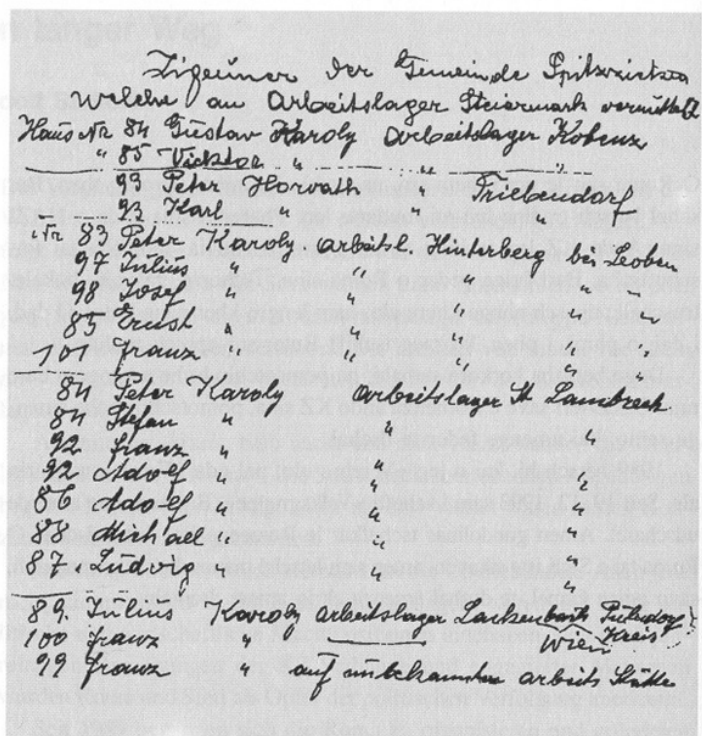 Zigeuner der Gemeinde Spitzzicken
Welche an Arbeitslager Steiermark vermittelt
Haus Nr. 84 Gustav Karoly Arbeitslager Kobenz
" 85 Vicktor " " "
93 Peter Horvath " Triebendorf
93 Karl " " "
Nr. 83 Peter Karoly arbeitsl. Hinterberg bei Leoben
97 Julius " " " " "
98 Josef " " " " "
85 Ernst " " " "
101 Franz " " " "
84 Peter Karoly arbeitslager St Lambrech
84 Stefan " " "
92 Franz " " "
92 Adolf " " "
86 Adolf " " "
88 Michael " " "
87 Ludwig " " "
89. Julius Karoly arbeitslager Lackenbach
100 Franz " Wien Kreis
99 Franz " auf unbekannten arbeits Stätte